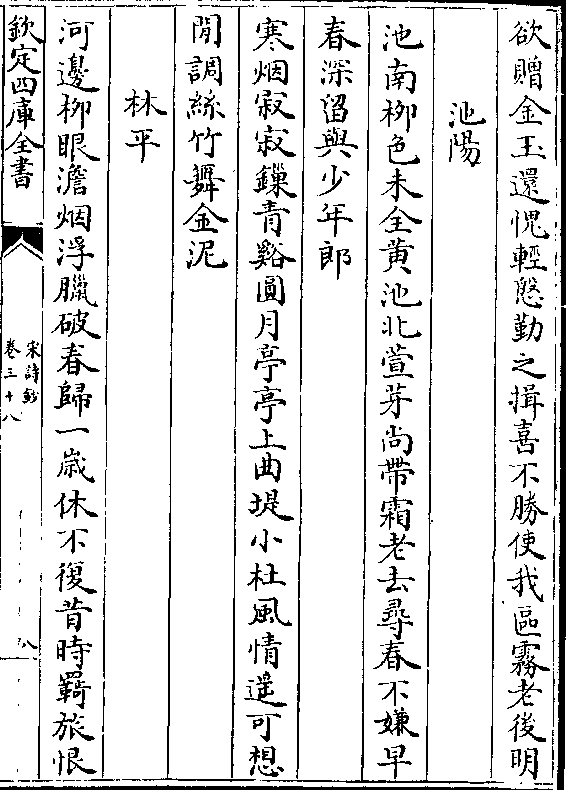 欲贈金玉還愧輕慇勤之揖喜不勝使我區霧老後明
池陽
池南柳色未全黄池北萱芽尚帶霜老去尋春不嫌早
春深留與少年郎
寒烟寂寂鏁青谿圓月亭亭上曲堤小杜風情遥可想
閒調絲竹舞金泥
林平
河邊柳眼澹烟浮臘破春歸一歳休不復昔時羇旅恨
欽定四庫全書
宋詩鈔
卷三十八
八